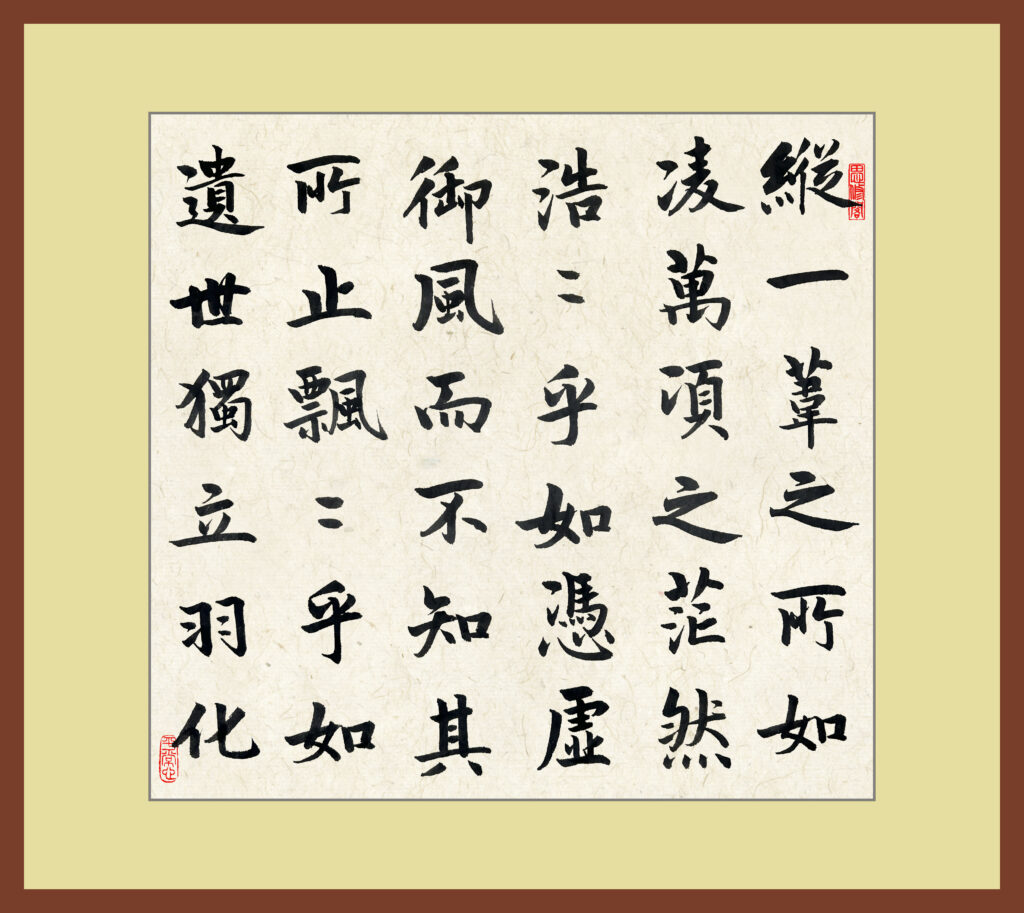 縱一葦之所如
凌萬頃之茫然
浩〻乎如憑虛
御風而不知其
所止飄〻乎如
遺世獨立羽化